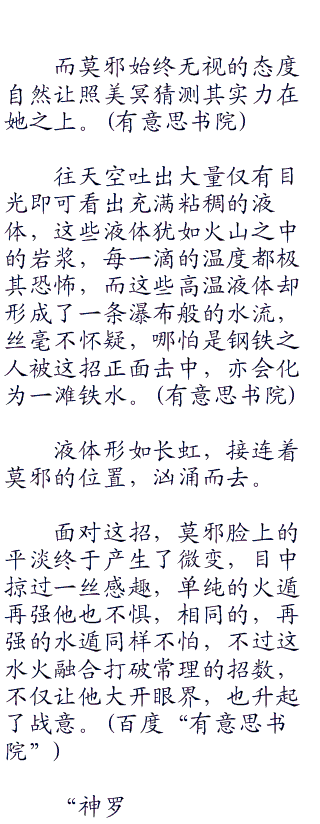 而莫邪始终无视的态度
自然让照美冥猜测其实力在
她之上。(有意思书院)
往天空吐出大量仅有目
光即可看出充满粘稠的液
体，这些液体犹如火山之中
的岩浆，每一滴的温度都极
其恐怖，而这些高温液体却
形成了一条瀑布般的水流，
丝毫不怀疑，哪怕是钢铁之
人被这招正面击中，亦会化
为一滩铁水。(有意思书院)
液体形如长虹，接连着
莫邪的位置，汹涌而去。
面对这招，莫邪脸上的
平淡终于产生了微变，目中
掠过一丝感趣，单纯的火遁
再强他也不惧，相同的，再
强的水遁同样不怕，不过这
水火融合打破常理的招数，
不仅让他大开眼界，也升起
了战意。(百度“有意思书
院”)
“神罗